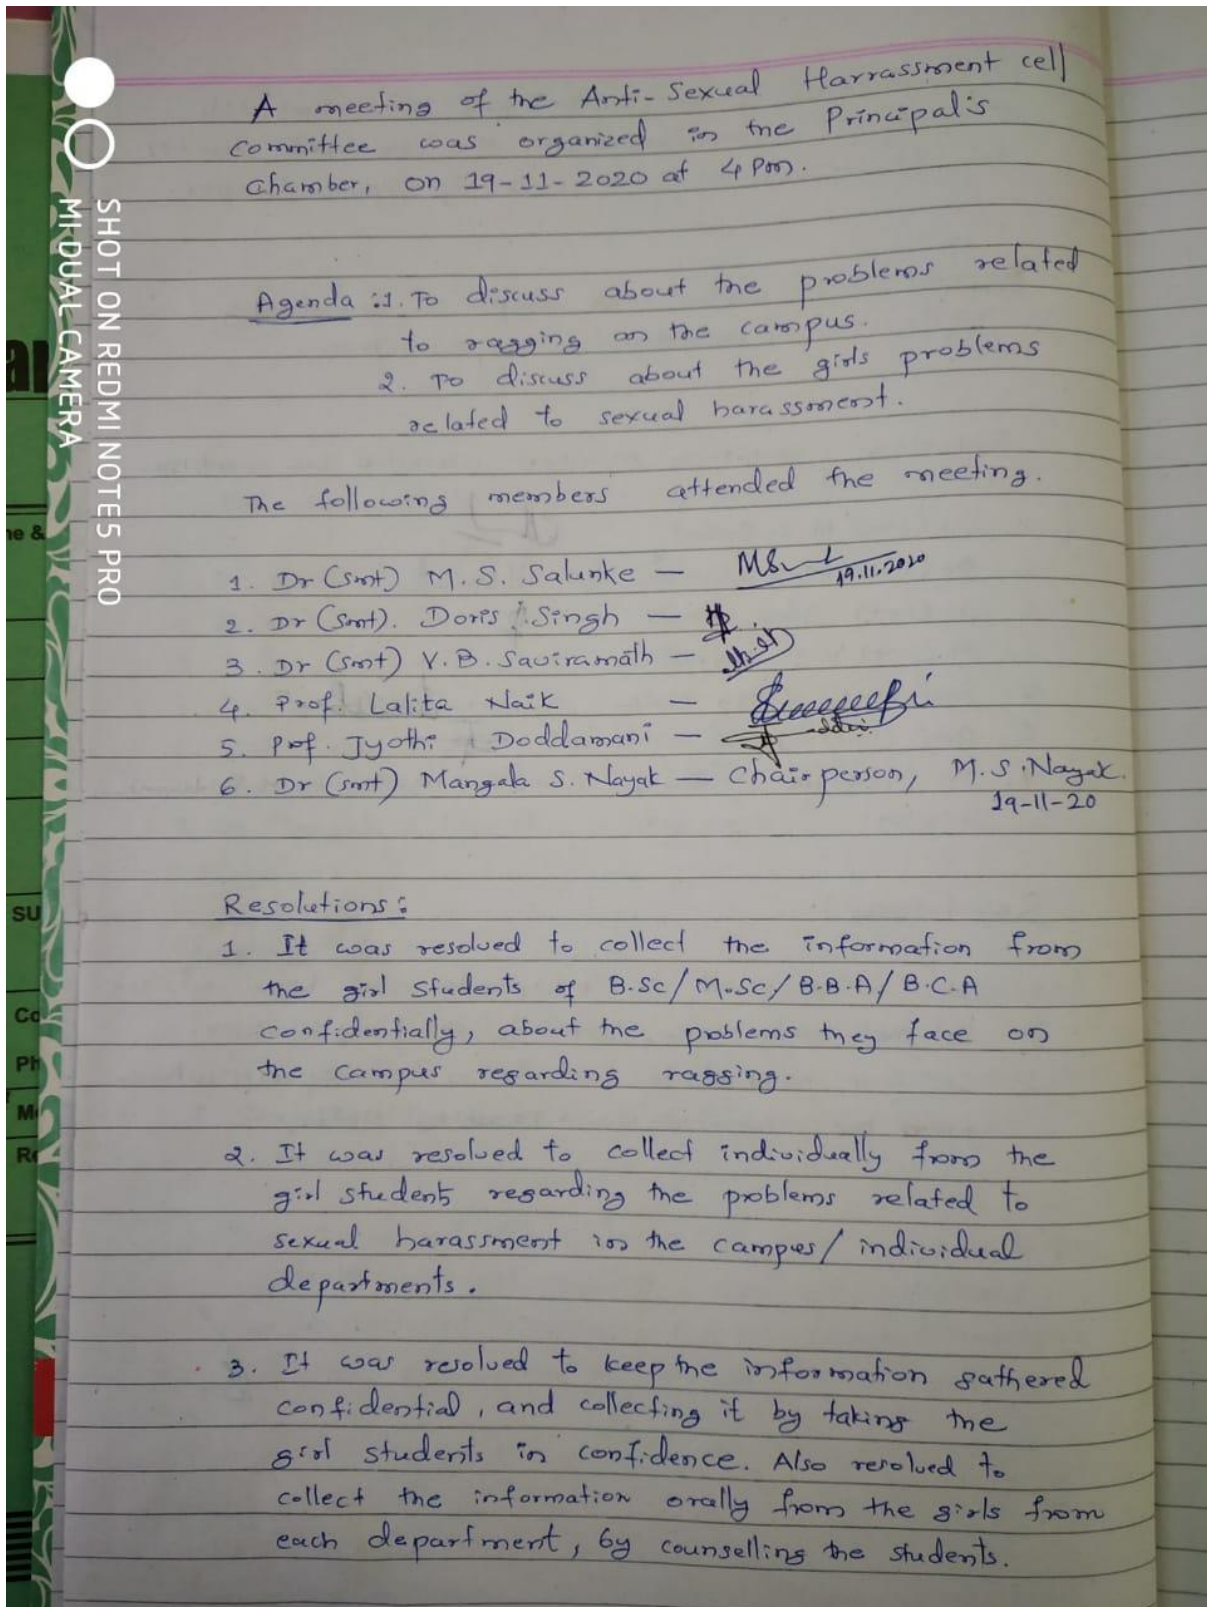 A meeting of the Anti-Sexual Harrassment cell
committee was organized in the Principal's
Chamber, on 19-11-2020 at 4 pm.
Agenda :1. To discuss about the problems related
to ragging on the campus.
2. To discuss about the girls problems
related to sexual harassment.
The following members attended the meeting.
1. Dr (Smt) M. S. Salunke —
19.11.2020
2. Dr (Smt). Doris Singh —
3. Dr (Smt) V. B. Saviramath —
4. Prof. Lalita Naik —
5. Prof. Jyothi Doddamani —
6. Dr (Smt) Mangala S. Nayak — Chairperson, M. S. Nayak.
19-11-20
Resolutions :
1. It was resolved to collect the information from
the girl students of B.Sc/M.Sc/B.B.A/B.C.A
confidentially, about the problems they face on
the campus regarding ragging.
2. It was resolved to collect individually from the
girl students regarding the problems related to
sexual harassment in the campus/individual
departments.
3. It was resolved to keep the information gathered
confidential, and collecting it by taking the
girl students in confidence. Also resolved to
collect the information orally from the girls from
each department, by counselling the students.
SHOT ON REDMI NOTE5 PRO
MI DUAL CAMERA
ne &
SU
Co
Ph
Mo
Re